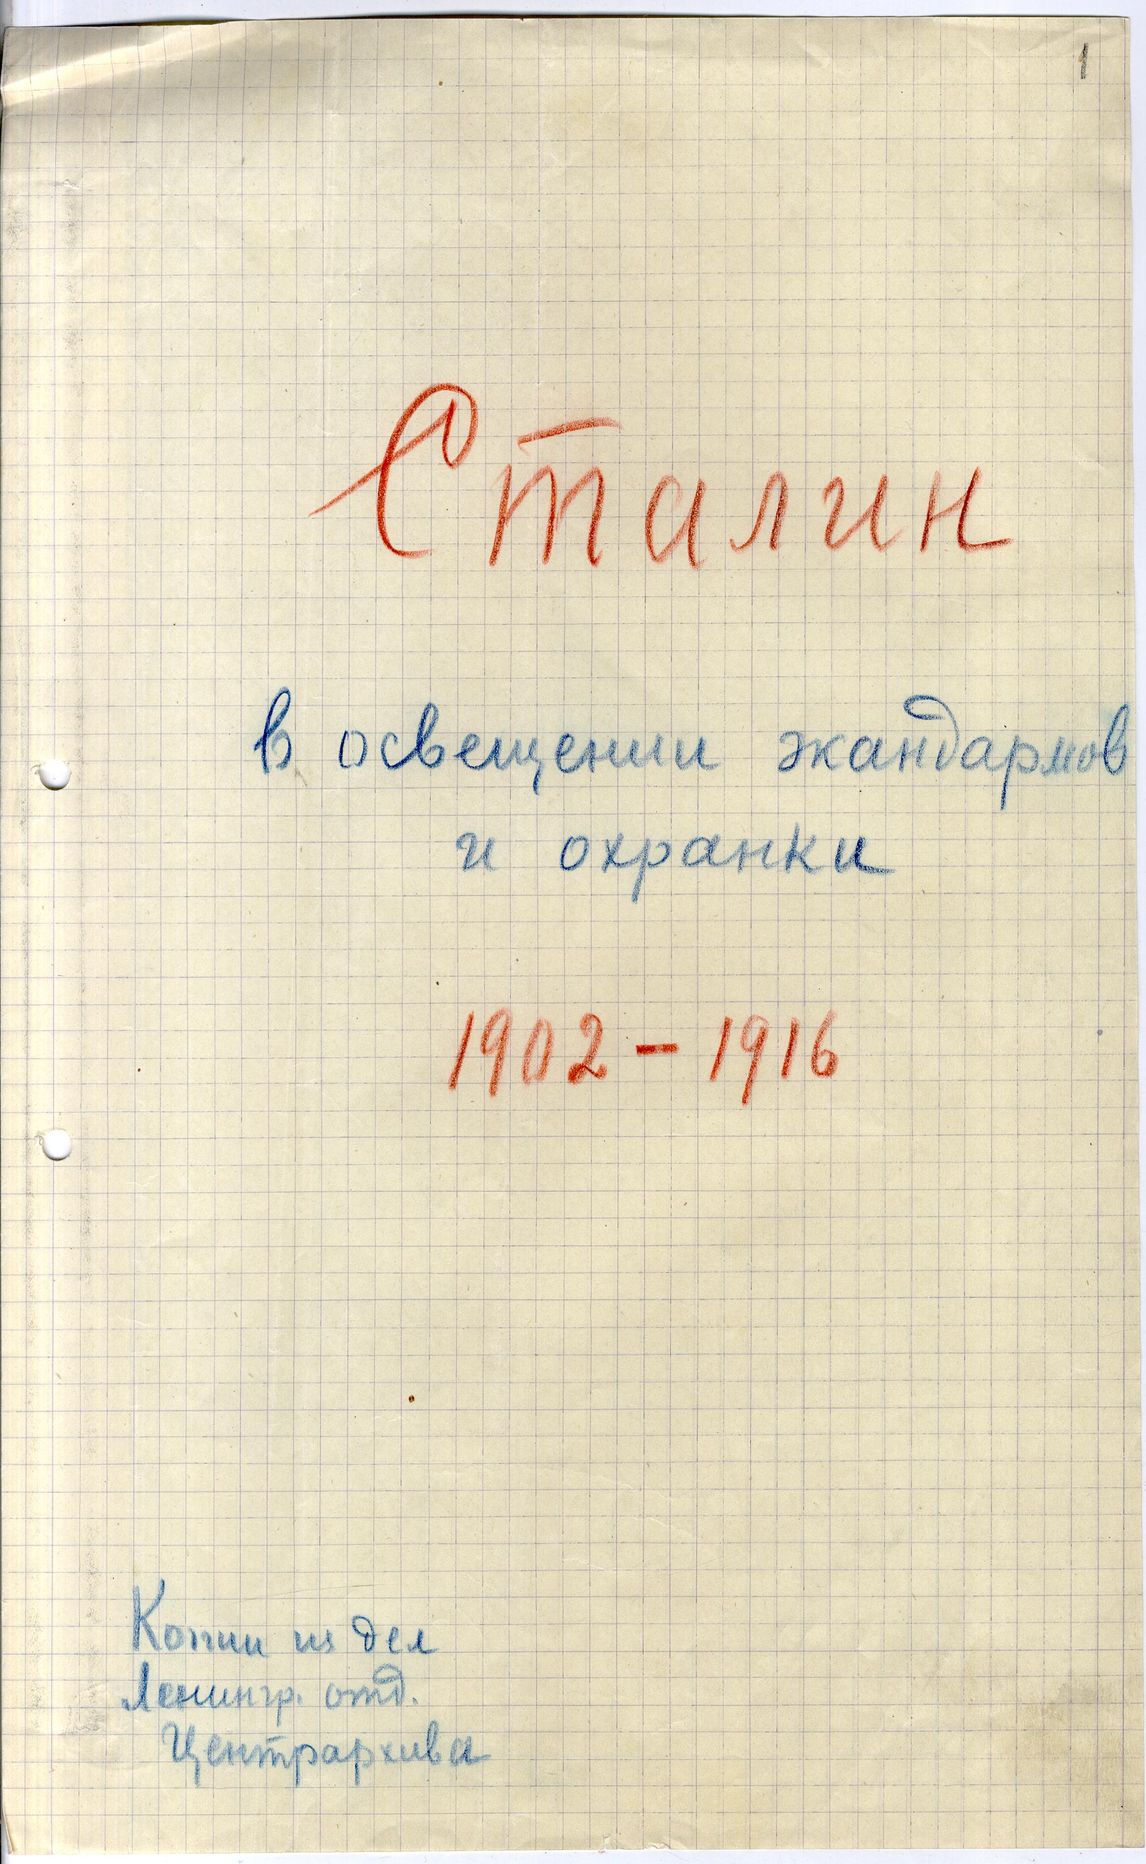 1
Сталин
в освещении жандармов
и охранки
1902 - 1916
Копии из дел
Ленингр. отд.
Центрархива